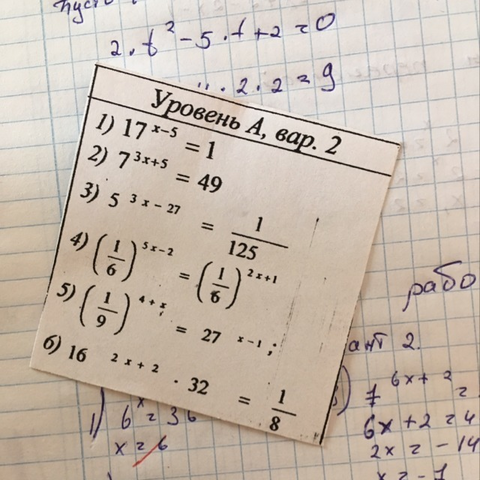 пусть
2·t² - 5·t + 2 = 0
·2·2 = 9
Уровень А, вар. 2
1) 17^(x-5) = 1
2) 7^(3x+5) = 49
3) 5^(3x-27) = 1/125
4) (1/6)^(5x-2) = (1/6)^(2x+1)
5) (1/9)^(4+x) = 27^(x-1);
6) 16^(2x+2) · 32 = 1/8
рабо
ант 2.
1) 6^x = 36
x = 6
7^(6x+2) =
6x+2=4
2x = -14
x = -7